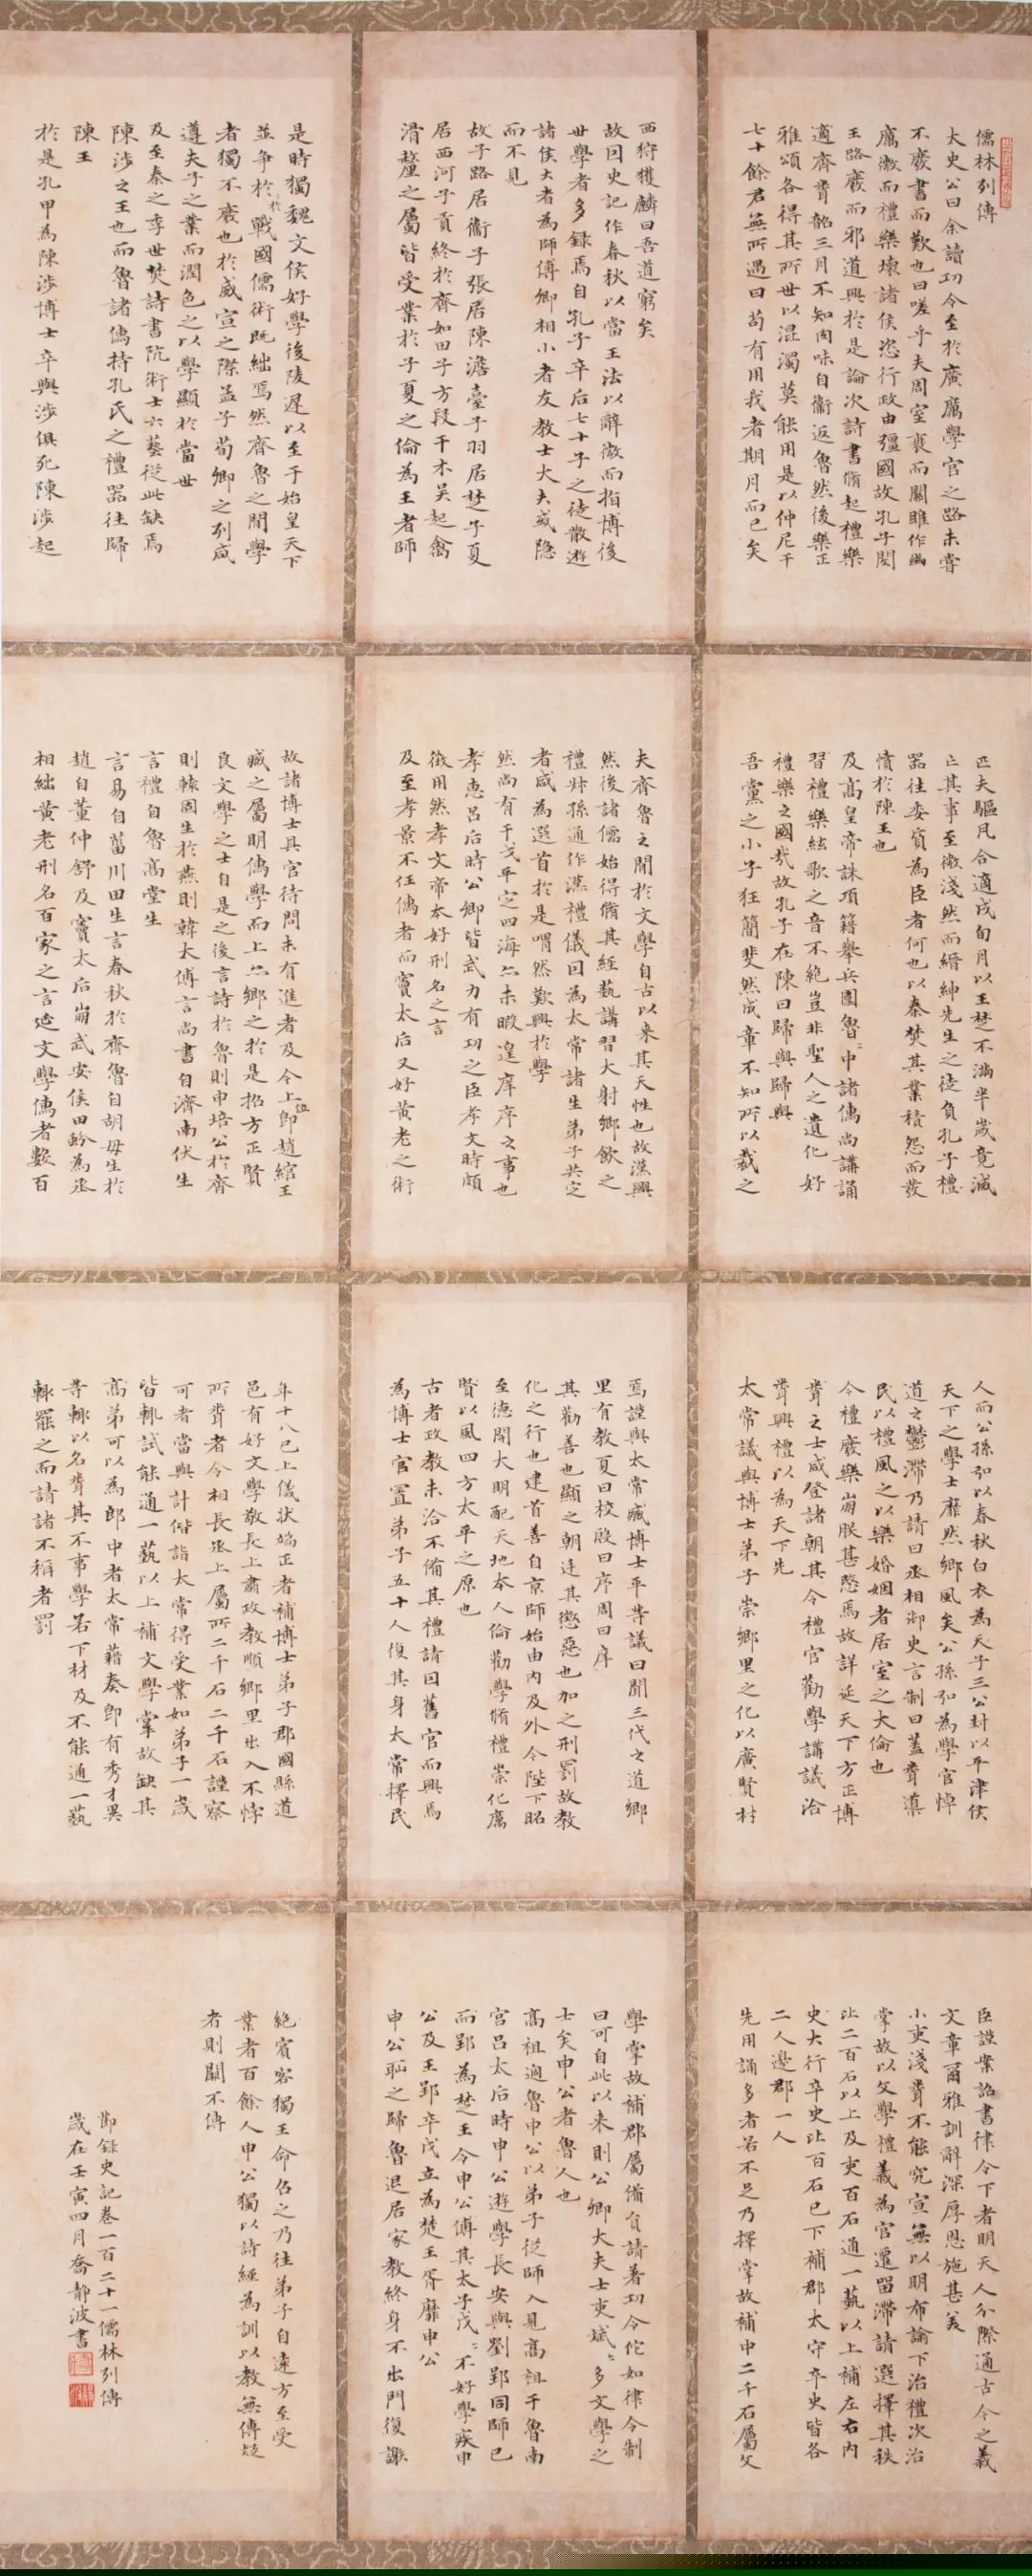 儒林列傳
太史公曰余讀功令至於廣厲學官之路未嘗
不廢書而歎也曰嗟乎夫周室衰而關雎作幽
厲微而禮樂壞諸侯恣行政由彊國故孔子閔
王路廢而邪道興於是論次詩書脩起禮樂
適齊聞韶三月不知肉味自衞返魯然後樂正
雅頌各得其所世以混濁莫能用是以仲尼干
七十餘君無所遇曰苟有用我者期月而已矣
西狩獲麟曰吾道窮矣
故因史記作春秋以當王法以辭微而指博後
世學者多録焉自孔子卒后七十子之徒散遊
諸侯大者為師傅卿相小者友教士大夫或隐
而不見
故子路居衞子張居陳澹臺子羽居楚子夏
居西河子貢終於齊如田子方段干木吴起禽
滑釐之屬皆受業於子夏之倫為王者師
是時獨魏文侯好學後陵遲以至于始皇天下
並争於戰國儒術既絀焉然齊魯之間學
者獨不廢也於威宣之際孟子荀卿之列咸
遵夫子之業而潤色之以學顯於當世
及至秦之季世焚詩書阬術士六藝從此缺焉
陳涉之王也而魯諸儒持孔氏之禮器往歸
陳王
於是孔甲為陳涉博士卒與涉俱死陳涉起
匹夫驅凡合適戍旬月以王楚不滿半歲竟滅
亡其事至微淺然而縉紳先生之徒負孔子禮
器往委質為臣者何也以秦焚其業積怨而發
憤於陳王也
及高皇帝誅項籍舉兵圍魯〻中諸儒尚講誦
習禮樂絃歌之音不絶豈非聖人之遺化好
禮樂之國哉故孔子在陳曰歸與歸與
吾黨之小子狂簡斐然成章不知所以裁之
夫齊魯之間於文學自古以来其天性也故漢興
然後諸儒始得脩其經藝講習大射鄉飲之
禮叔孫通作漢禮儀因為太常諸生弟子共定
者咸為選首於是喟然歎興於學
然尚有干戈平定四海亦未暇遑庠序之事也
孝惠吕后時公卿皆武力有功之臣孝文時頗
徵用然孝文帝本好刑名之言
及至孝景不任儒者而竇太后又好黄老之術
故諸博士具官待問未有進者及今上即趙綰王
臧之屬明儒學而上亦鄉之於是招方正賢
良文學之士自是之後言詩於魯則申培公於齊
則轅固生於燕則韓太傅言尚書自濟南伏生
言禮自魯高堂生
言易自菑川田生言春秋於齊魯自胡毋生於
趙自董仲舒及竇太后崩武安侯田蚡為丞
相絀黄老刑名百家之言延文學儒者數百
人而公孫弘以春秋白衣為天子三公封以平津侯
天下之學士靡然鄉風矣公孫弘為學官悼
道之鬱滯乃請曰丞相御史言制曰蓋聞導
民以禮風之以樂婚姻者居室之大倫也
今禮廢樂崩朕甚愍焉故詳延天下方正博
聞之士咸登諸朝其令禮官勸學講議洽
聞興禮以為天下先
太常議與博士弟子崇鄉里之化以廣賢材
焉謹與太常臧博士平等議曰聞三代之道鄉
里有教夏曰校殷曰序周曰庠
其勸善也顯之朝廷其懲惡也加之刑罰故教
化之行也建首善自京師始由内及外今陛下昭
至德開大明配天地本人倫勸學脩禮崇化厲
賢以風四方太平之原也
古者政教未洽不備其禮請因舊官而興焉
為博士官置弟子五十人復其身太常擇民
年十八已上儀狀端正者補博士弟子郡國縣道
邑有好文學敬長上肅政教順鄉里出入不悖
所聞者令相長丞上屬所二千石二千石謹察
可者當與計偕詣太常得受業如弟子一歲
皆輒試能通一藝以上補文學掌故缺其
高弟可以為郎中者太常藉奏即有秀才異
等輒以名聞其不事學若下材及不能通一藝
輒罷之而請諸不稱者罰
臣謹案詔書律令下者明天人分際通古今之義
文章爾雅訓辭深厚恩施甚美
小吏淺聞不能究宣無以明布諭下治禮次治
掌故以文學禮義為官遷留滯請選擇其秩
比二百石以上及吏百石通一藝以上補左右内
史大行卒史比百石已下補郡太守卒史皆各
二人邊郡一人
先用誦多者若不足乃擇掌故補中二千石屬文
學掌故補郡屬備員請著功令佗如律令制
曰可自此以来則公卿大夫士吏斌〻多文學之
士矣申公者魯人也
高祖過魯申公以弟子從師入見高祖于魯南
宫吕太后時申公遊學長安與劉郢同師已
而郢為楚王令申公傅其太子戊〻不好學疾申
公及王郢卒戊立為楚王胥靡申公
申公恥之歸魯退居家教終身不出門復謝
絶賓客獨王命召之乃往弟子自遠方至受
業者百餘人申公獨以詩經為訓以教無傳疑
者則闕不傳
節録史記卷一百二十一儒林列傳
歲在壬寅四月喬静波書